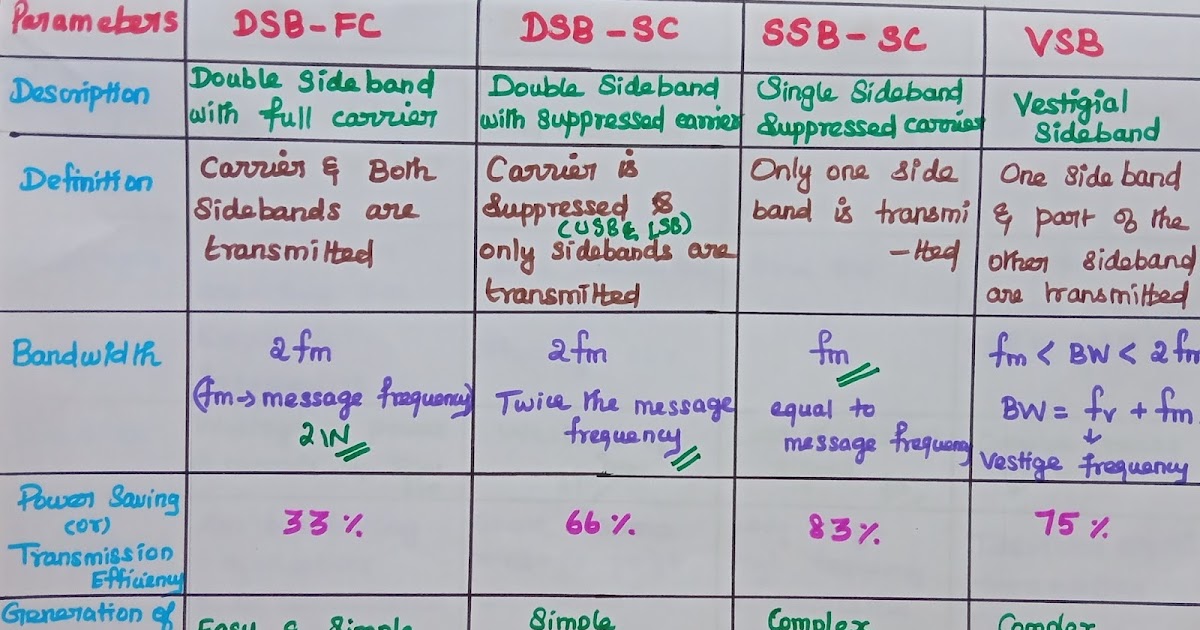 Parameters DSB-FC DSB-SC SSB-SC VSB
Description
Double Sideband
with full carrier
Double Sideband
with suppressed carrier
Single Sideband
Suppressed carrier
Vestigial
Sideband
Definition
Carrier & Both
Sidebands are
transmitted
Carrier is
suppressed &
(USB & LSB)
only sidebands are
transmitted
Only one side
band is transmi
-tted
One side band
& part of the
other sideband
are transmitted
Bandwidth
2fm
(fm→ message frequency)
2W
2fm
Twice the message
frequency
fm
equal to
message frequency
fm < BW < 2fm
BW = fv + fm
↓
Vestige frequency
Power Saving
(or)
Transmission
Efficiency
33%
66%
83%
75%
Generation of
Easy & Simple
Simple
Complex
Complex